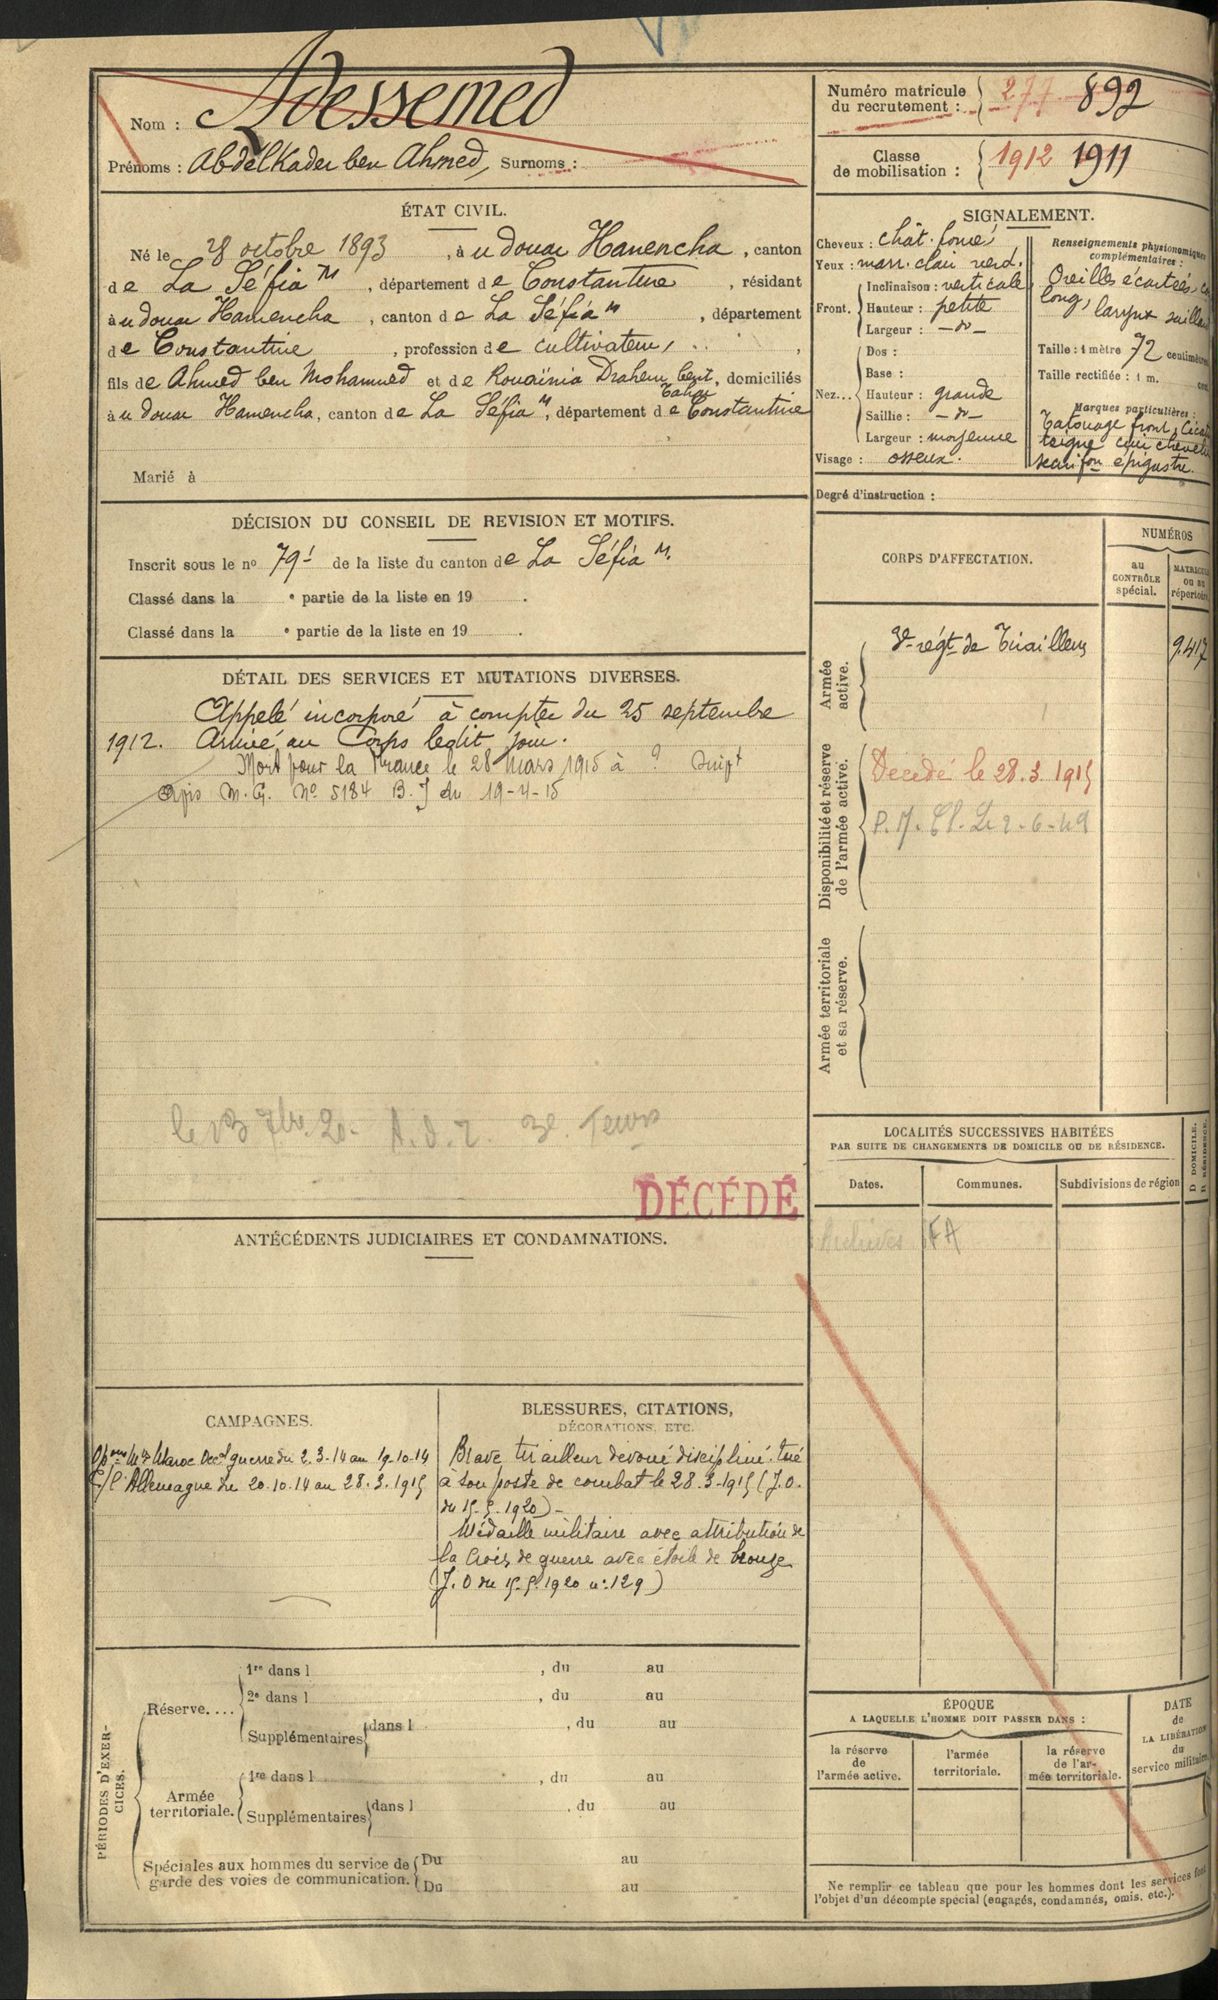 Nom : Adessemed
Prénoms : Abdelkader ben Ahmed, Surnoms :
Numéro matricule
du recrutement : 277 892
Classe
de mobilisation : 1912 1911
ÉTAT CIVIL.
Né le 28 octobre 1893, à u douar Hanencha, canton
de La Séfia M, département de Constantine, résidant
à u douar Hanencha, canton de La Séfia M, département
de Constantine, profession de cultivateur,
fils de Ahmed ben Mohammed et de Rouaïnia Drahem bent Tahar, domiciliés
à u douar Hanencha, canton de La Séfia M, département de Constantine
Marié à
SIGNALEMENT.
Cheveux : chât. foncé
Yeux : marr. clair verd.
Front. Inclinaison : verticale
Hauteur : petite
Largeur : -do-
Nez... Dos :
Base :
Hauteur : grande
Saillie : -do-
Largeur : moyenne
Visage : osseux.
Renseignements physionomiques
complémentaires :
Oreilles écartées,
long, larynx
Taille : 1 mètre 72 centimètres
Taille rectifiée : 1 m. cent.
Marques particulières :
Tatouage front,
teigne cuir
scarifon épigastre.
Degré d'instruction :
DÉCISION DU CONSEIL DE REVISION ET MOTIFS.
Inscrit sous le no 79 de la liste du canton de La Séfia M.
Classé dans la e partie de la liste en 19 .
Classé dans la e partie de la liste en 19 .
CORPS D'AFFECTATION.
NUMÉROS
au
CONTRÔLE
spécial.
MATRICULE
ou au
répertoire.
Armée
active.
3e régt de Tirailleurs
9.417
Disponibilité et réserve
de l'armée active.
Décédé le 28.3.1915
Armée territoriale
et sa réserve.
DÉTAIL DES SERVICES ET MUTATIONS DIVERSES.
Appelé incorporé à compter du 25 septembre
1912. Arrivé au Corps ledit jour.
Mort pour la France le 28 Mars 1915 à ?
Avis M.G. No 5184 B.J du 19-4-15
DÉCÉDÉ
LOCALITÉS SUCCESSIVES HABITÉES
PAR SUITE DE CHANGEMENTS DE DOMICILE OU DE RÉSIDENCE.
Dates.
Communes.
Subdivisions de région
D DOMICILE.
R RÉSIDENCE.
Archives FA
ANTÉCÉDENTS JUDICIAIRES ET CONDAMNATIONS.
CAMPAGNES.
Maroc guerre du 2.3-14 au 19.10.14
C/ l'Allemagne du 20.10.14 au 28.3.1915
BLESSURES, CITATIONS,
DÉCORATIONS, ETC.
Brave tirailleur dévoué discipliné. tué
à son poste de combat le 28.3-1915 (J.O.
du 15-5-1920) -
Médaille militaire avec attribution de
la Croix de guerre avec étoile de bronze
(J.O du 15.5.1920 no 129)
PÉRIODES D'EXER-
CICES.
Réserve....
1re dans l , du au
2e dans l , du au
Supplémentaires dans l , du au
Armée
territoriale.
1re dans l , du au
Supplémentaires dans l , du au
Spéciales aux hommes du service de
garde des voies de communication.
Du au
Du au
ÉPOQUE
A LAQUELLE L'HOMME DOIT PASSER DANS :
la réserve
de
l'armée active.
l'armée
territoriale.
la réserve
de l'ar-
mée territoriale.
DATE
de
LA LIBÉRATION
du
service militaire.
Ne remplir ce tableau que pour les hommes dont les services font
l'objet d'un décompte spécial (engagés, condamnés, omis, etc.).